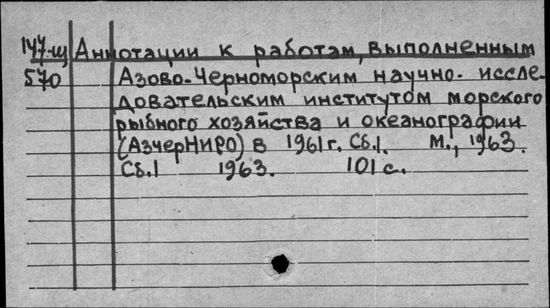 147-щ Аннотации к работам, выполненным
570 Азово-Черноморским научно-иссле-
довательским институтом морского
рыбного хозяйства и океанографии
(АзчерНИРО) в 1961 г. Сб.1. М., 1963.
Сб.1 1963. 101 с.